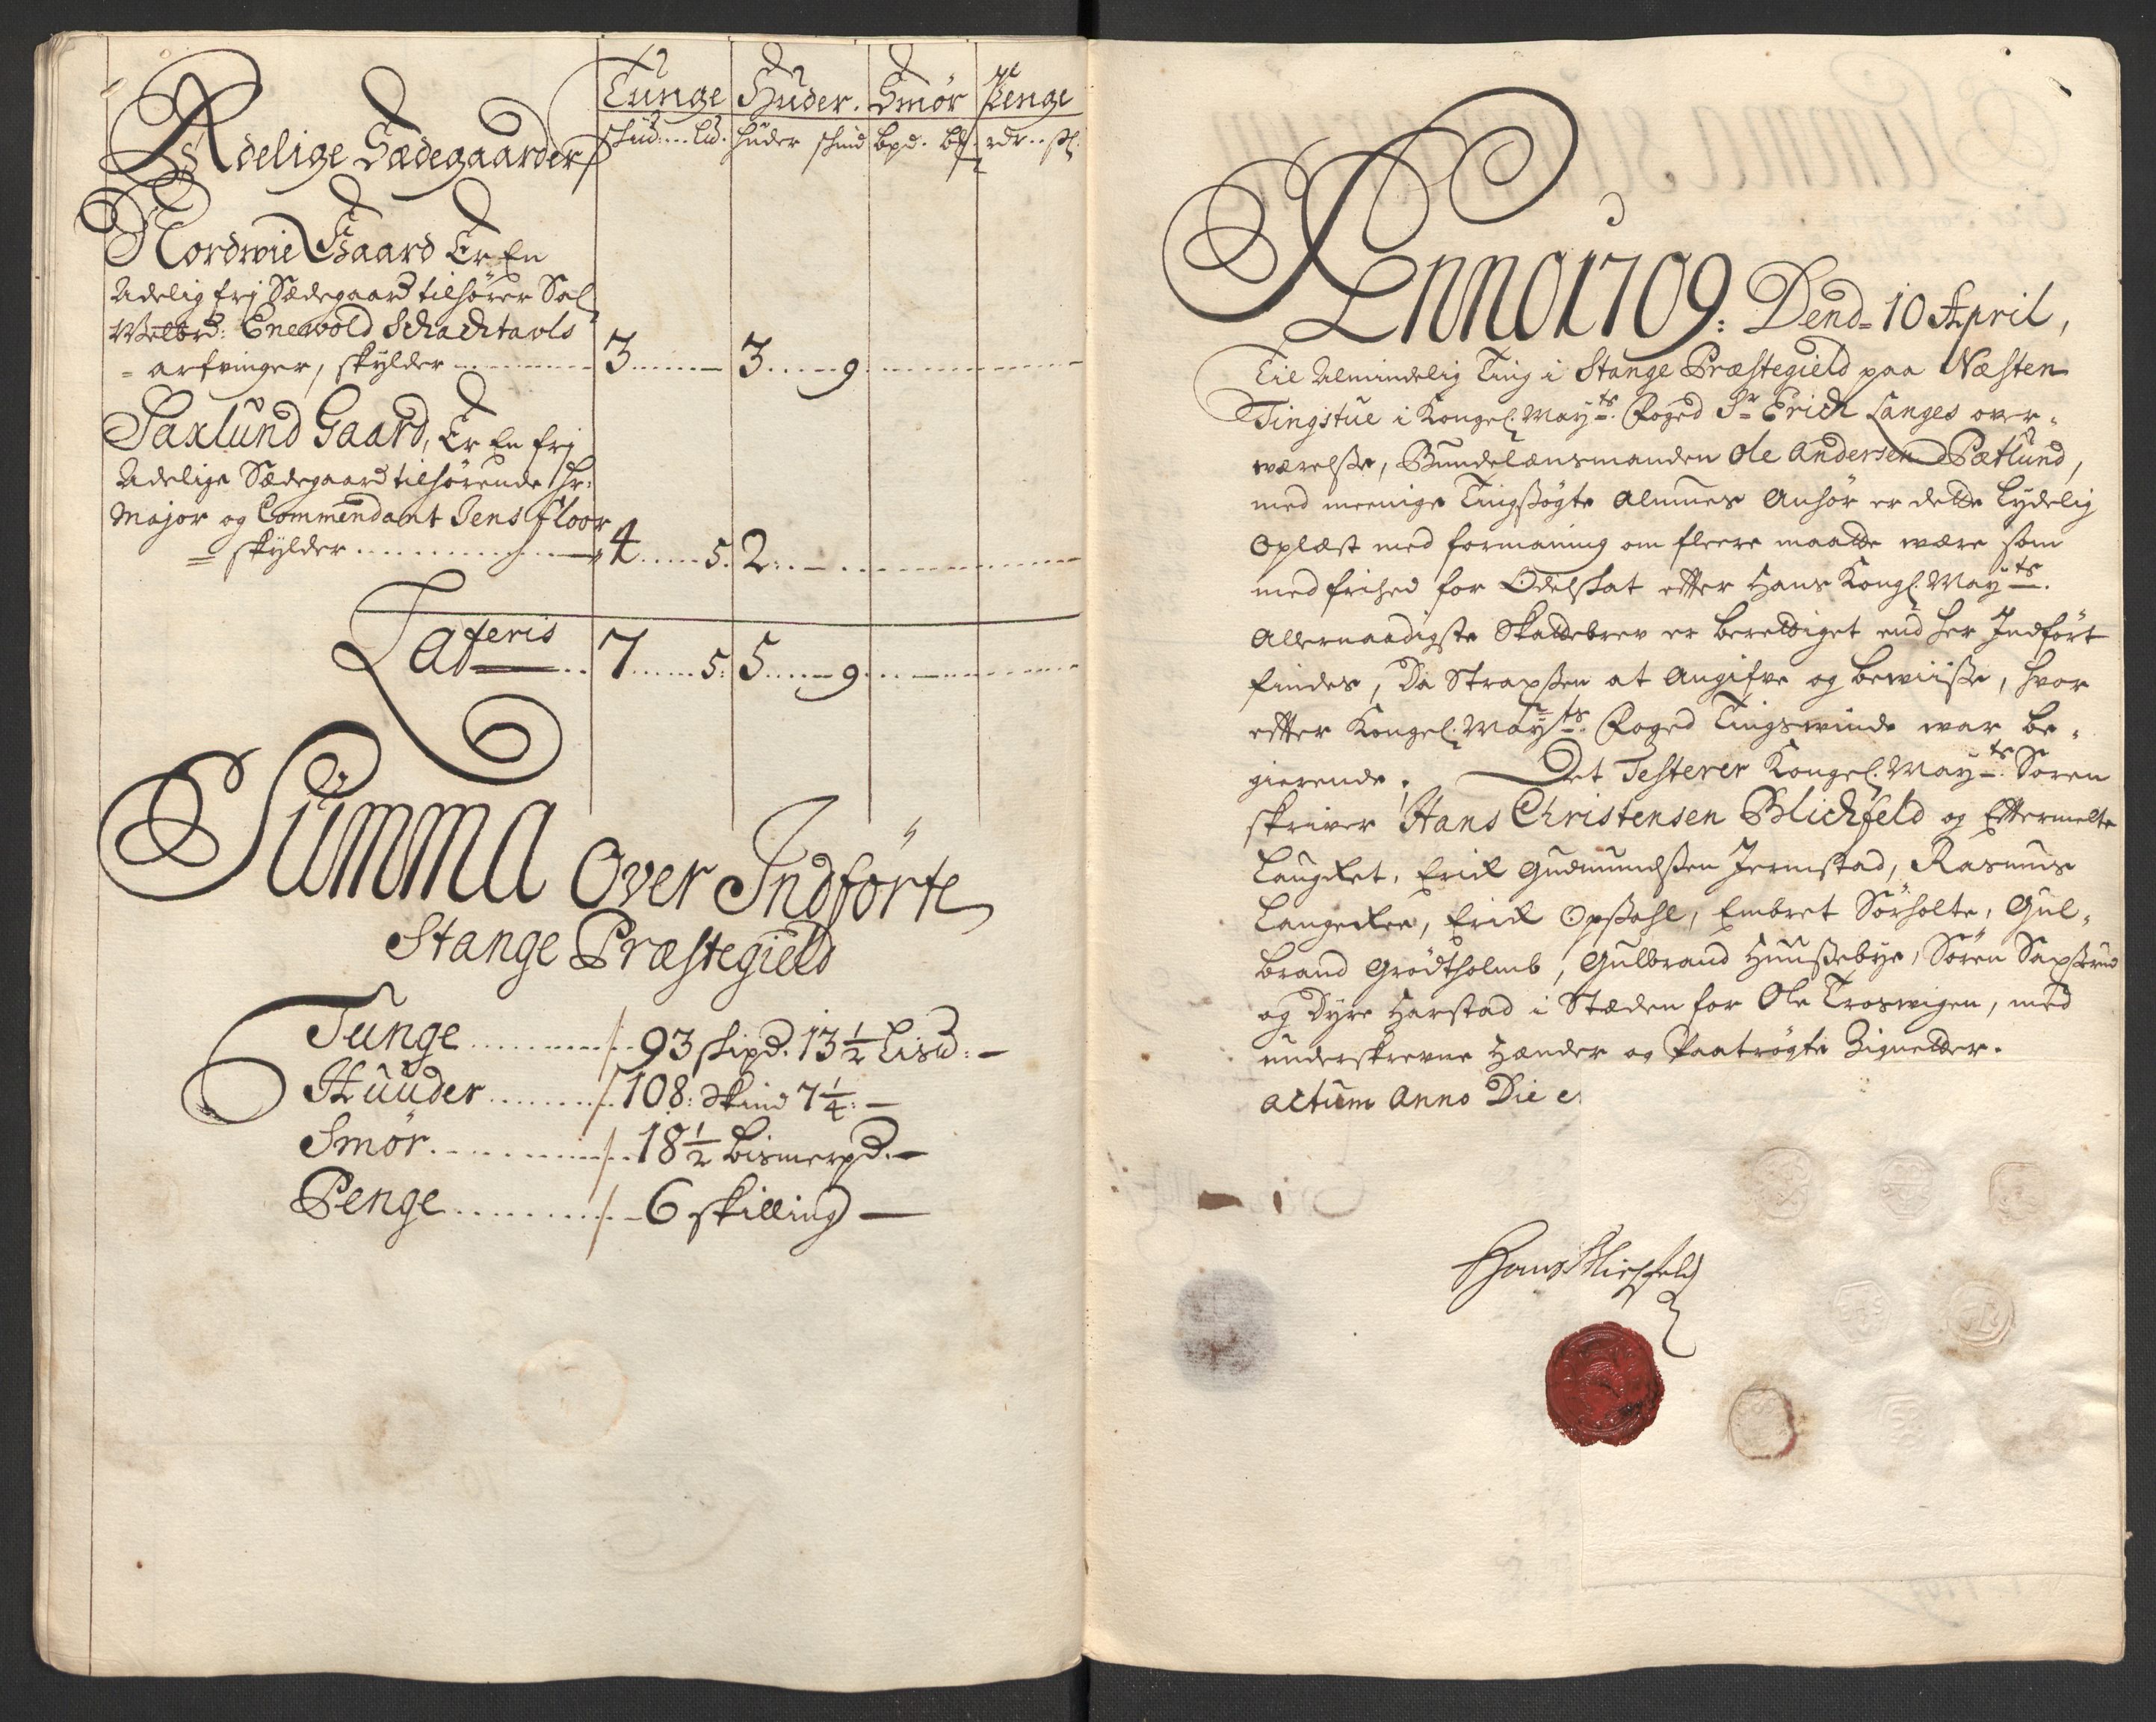 Tunge Huder. Smör Penge
Adelige Sædegaarder
skud: Lid. huder skind bpd. bß. rdr. ßl.
Nordwie Gaard Er En
Adelig frj Sædegaard tilhører Sal
Welbrd: Enewold Schachtavls
arfvinger, skylder 3 3 9
Saxlund Gaard, Er En frj
Adelige Sædegaard tilhørende Hr:
Major og Commendant Jens Floor
skylder 4 5. 2
Lateris 7 5: 5 9
Summa Over Indförte
Stange Præstegield
Tunge 93 skipd. 13½ Lisd:
Huuder 108: skind 7¼:
Smör 18½ bismerpd.
Penge 6 skilling
Anno 1709: Dend 10 April,
Til Almindelig Ting i Stange Præstegield paa Næsten
Tingstue i Kongel: Mayts. Foged Sr Erich Langes over-
værelsse, Bundelænsmanden Ole Andersen Pætlund,
med meenige Tingssøgte Almues Anhör er dette Lydelig
Oplæst med formaning om fleere maatte være som
med frihed for Odelskat efter Hans Kongl. Mayts.
Allernaadigste Skattebrev er berettiget end her Indfört
findes, Da Strapssen at Angifve og bewiisse, hvor
efter Kongel: Mayts. Foged Tingswinde war be-
gierende. Det Testerer Kongel. Mayts. Soren
skriver Hans Christensen Blichfeld og Eftermelte
Laugret. Erich Gudmundssen Jermstad, Rasmus
Langerkee, Erich Opssahl, Embret Sörholte, Gul-
brand Grödtholmb, Gulbrand Huussebye, Sören Saxsrud
og Dyre Harstad i Stæden for Ole Troswigen, med
underskrevne Hænder og Paatrögte Zignetter.
Actum Anno Die e.
Hans Blichfeld